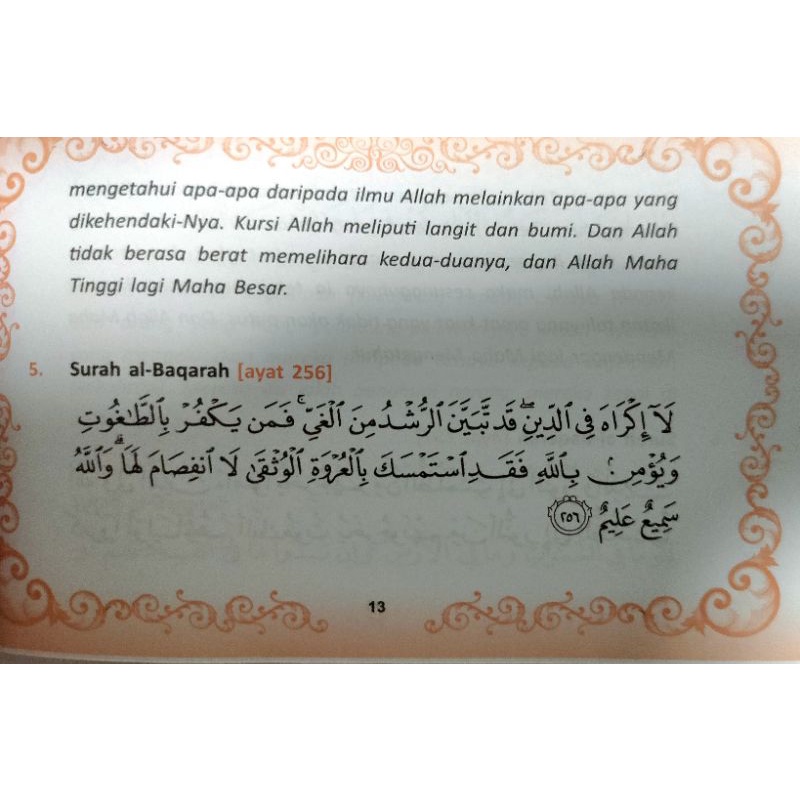 mengetahui apa-apa daripada ilmu Allah melainkan apa-apa yang
dikehendaki-Nya. Kursi Allah meliputi langit dan bumi. Dan Allah
tidak berasa berat memelihara kedua-duanya, dan Allah Maha
Tinggi lagi Maha Besar.
5. Surah al-Baqarah [ayat 256]
لَآ إِكْرَاهَ فِي ٱلدِّينِۖ قَد تَّبَيَّنَ ٱلرُّشْدُ مِنَ ٱلْغَيِّۚ فَمَن يَكْفُرْ بِٱلطَّٰغُوتِ
وَيُؤْمِنۢ بِٱللَّهِ فَقَدِ ٱسْتَمْسَكَ بِٱلْعُرْوَةِ ٱلْوُثْقَىٰ لَا ٱنفِصَامَ لَهَاۗ وَٱللَّهُ
سَمِيعٌ عَلِيمٌ ٢٥٦
13